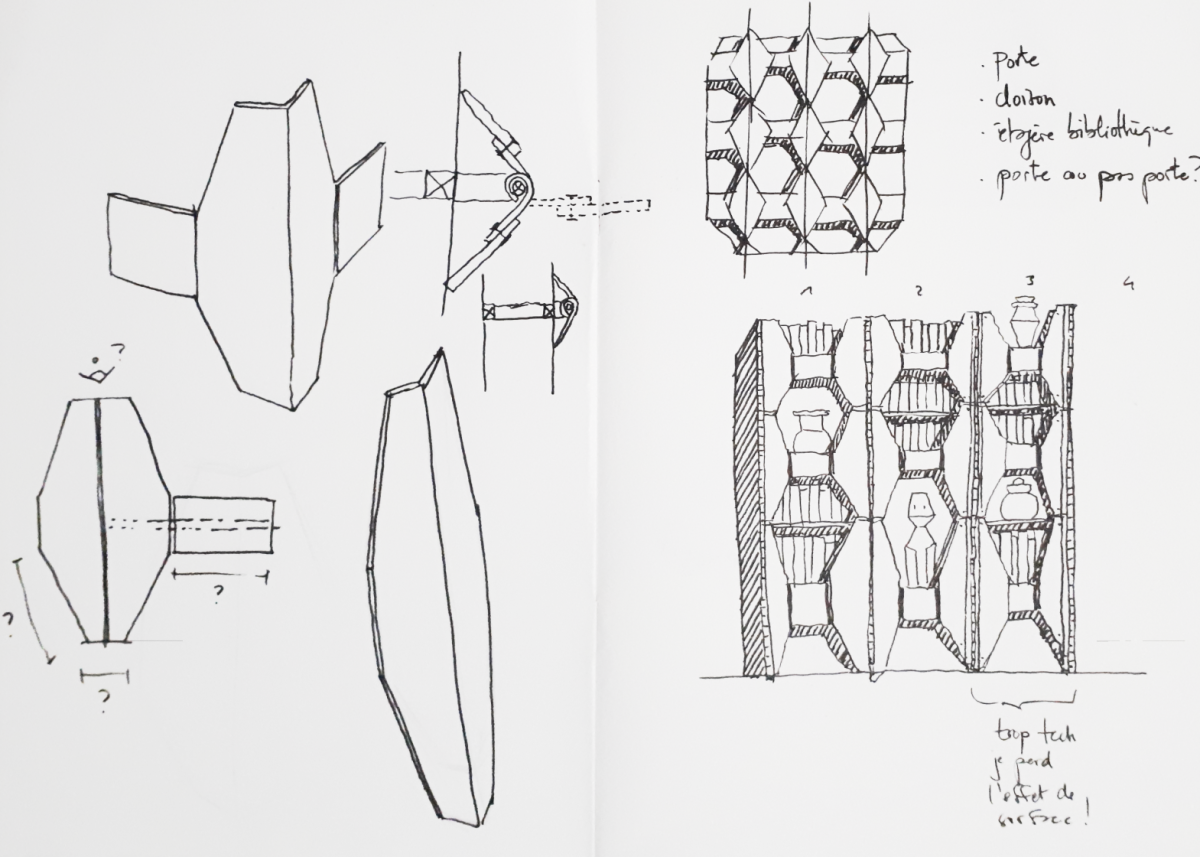 ?
?
?
?
. Porte
. cloison
. étagère bibliothèque
. porte ou pas porte?
1 2 3 4
trop tech
je perd
l'effet de
surface!